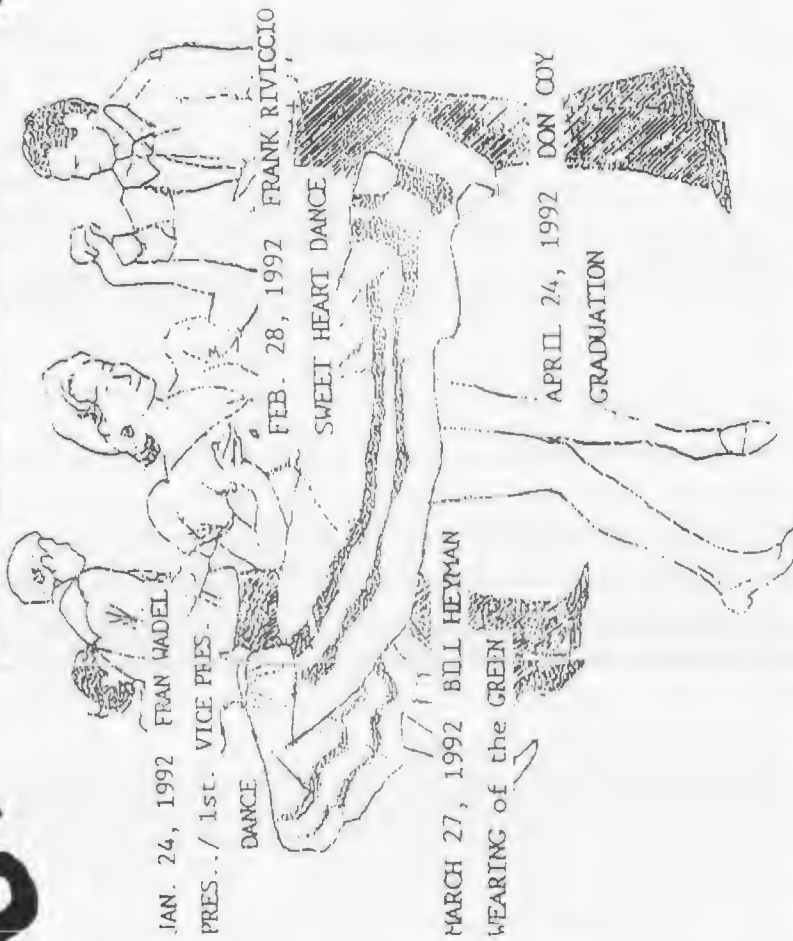 JAN. 24, 1992 FRAN WADEL
PRES../ 1st. VICE PRES.
DANCE
FEB. 28, 1992 FRANK RIVICCIO
SWEET HEART DANCE
MARCH 27, 1992 BILL HEYMAN
WEARING of the GREEN
APRIL 24, 1992 DON COY
GRADUATION